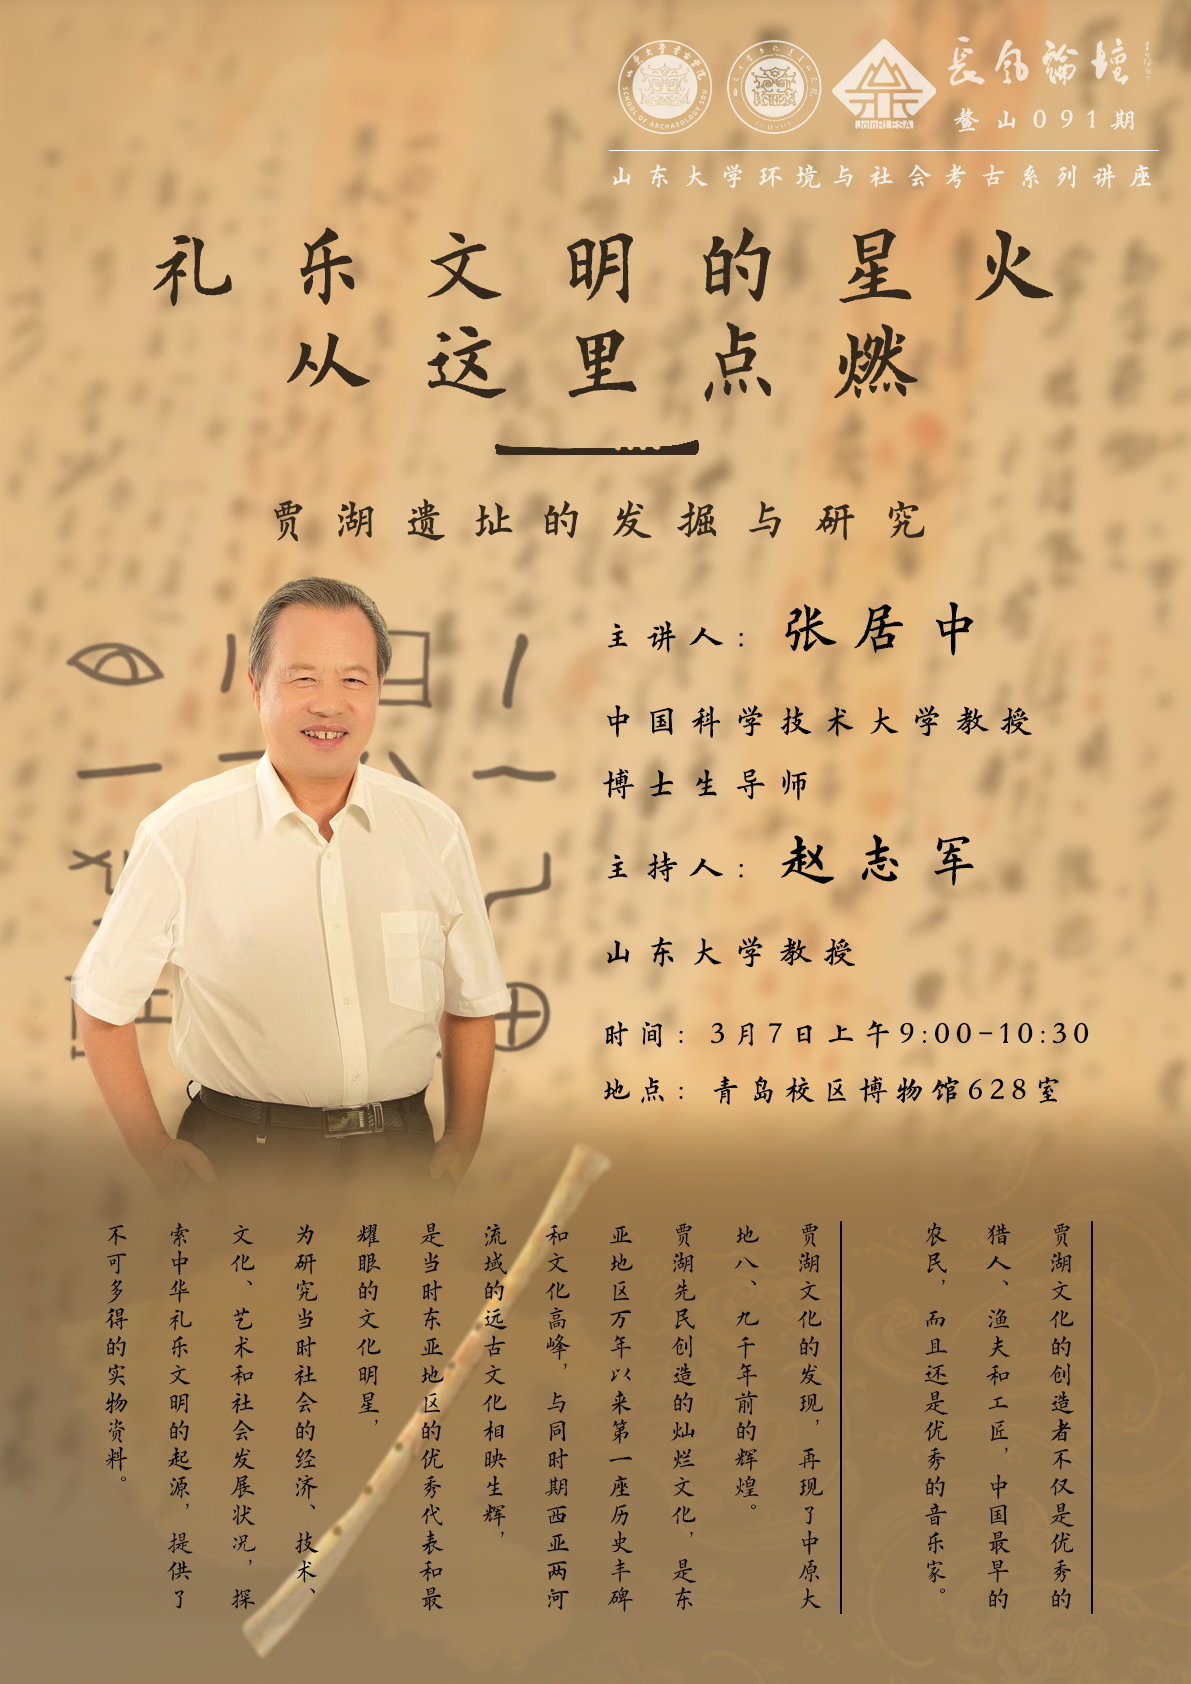 山东大学考古学院
SCHOOL OF ARCHAEOLOGY SDU
JoinRLESA
長風論壇
鳌山091期
山东大学环境与社会考古系列讲座
礼乐文明的星火
从这里点燃
贾湖遗址的发掘与研究
主讲人：张居中
中国科学技术大学教授
博士生导师
主持人：赵志军
山东大学教授
时间：3月7日上午9:00-10:30
地点：青岛校区博物馆628室
贾湖文化的创造者不仅是优秀的
猎人、渔夫和工匠，中国最早的
农民，而且还是优秀的音乐家。
贾湖文化的发现，再现了中原大
地八、九千年前的辉煌。
贾湖先民创造的灿烂文化，是东
亚地区万年以来第一座历史丰碑
和文化高峰，与同时期西亚两河
流域的远古文化相映生辉，
是当时东亚地区的优秀代表和最
耀眼的文化明星，
为研究当时社会的经济、技术、
文化、艺术和社会发展状况，探
索中华礼乐文明的起源，提供了
不可多得的实物资料。